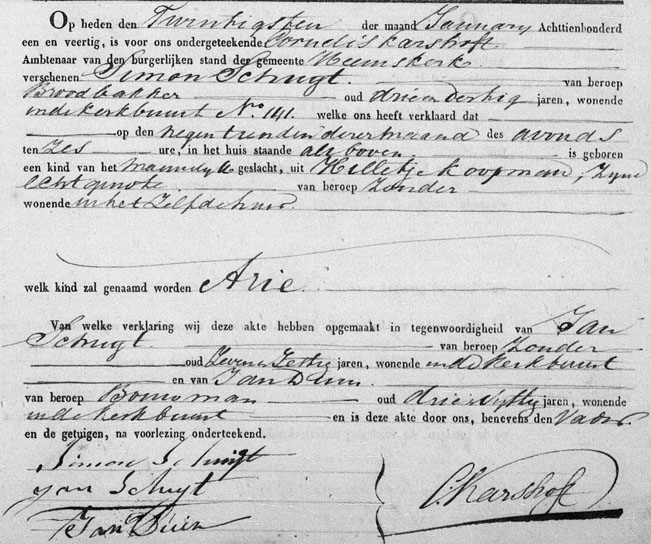 Op heden den Twintigsten der maand Januarij Achttienhonderd
een en veertig, is voor ons ondergeteekende Cornelis Karshoff
Ambtenaar van den burgerlijken stand der gemeente Heemskerk
verschenen Simon Schugt van beroep
Broodbakker oud drie en Dertig jaren, wonende
in de kerkbuurt No. 141. welke ons heeft verklaard dat
op den negentienden dezer maand des avonds
ten Zes ure, in het huis staande als boven is geboren
een kind van het mannelijk geslacht, uit Hilletje koopman, Zijne
Echtgenote van beroep Zonder
wonende in het Zelfde huis.
welk kind zal genaamd worden Arie
Van welke verklaring wij deze akte hebben opgemaakt in tegenwoordigheid van Jan
Schugt van beroep Zonder
oud Zeven en Zestig jaren, wonende in de kerkbuurt
en van Jan Duin
van beroep Bouwman oud drie en vyftig jaren, wonende
in de kerkbuurt en is deze akte door ons, benevens den Vader
en de getuigen, na voorlezing onderteekend.
Simon Schugt
jan Schugt
Jan Duin
C. Karshoff